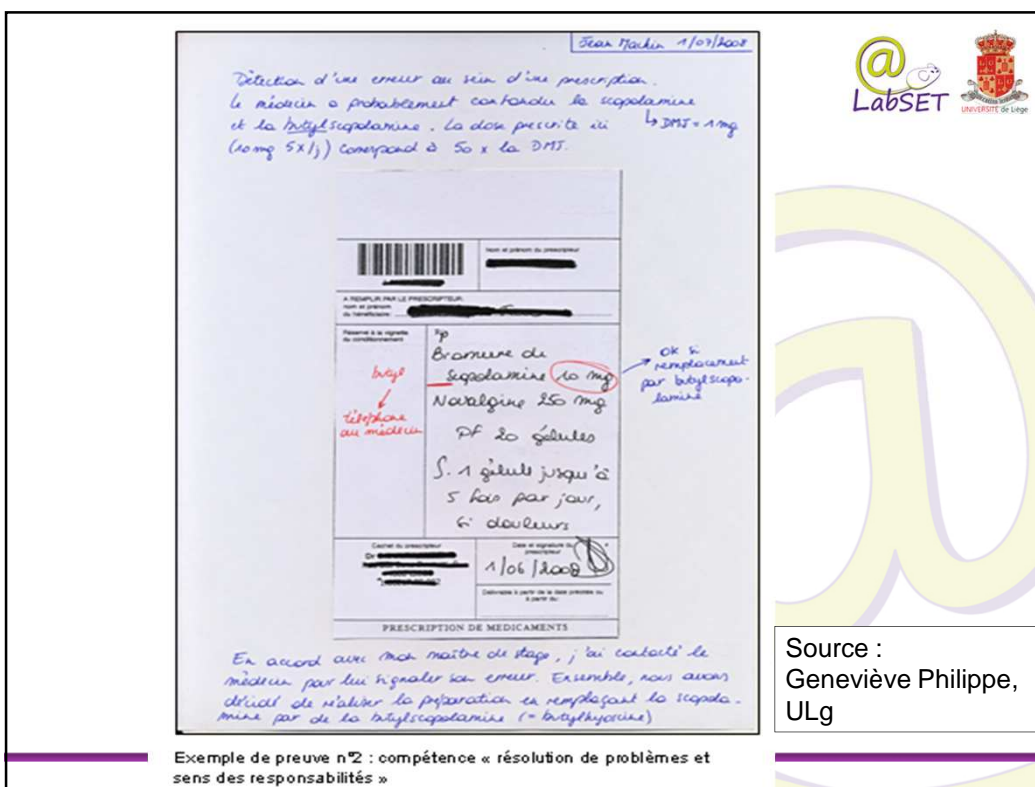 Jean Machin 1/07/2008
Détection d'une erreur au sein d'une prescription.
Le médecin a probablement confondu la scopolamine
et la butylscopolamine. La dose prescrite ici
↳ DMJ = 1 mg
(10 mg 5x/j) correspond à 50 x la DMJ.
Nom et prénom du prescripteur
A REMPLIR PAR LE PRESCRIPTEUR:
nom et prénom
du bénéficiaire:
Réservé à la vignette
du conditionnement
R/p
Bromure de
scopolamine 10 mg
Novalgine 250 mg
pf 20 gélules
S. 1 gélule jusqu'à
5 fois par jour,
si douleurs
butyl
téléphone
au médecin
ok si
remplacement
par butylscopo-
lamine
Cachet du prescripteur
Dr
Date et signature du
prescripteur
1/06/2008
Délivrable à partir de la date précitée ou
à partir du:
PRESCRIPTION DE MEDICAMENTS
En accord avec mon maître de stage, j'ai contacté le
médecin pour lui signaler son erreur. Ensemble, nous avons
décidé de réaliser la préparation en remplaçant la scopola-
mine par de la butylscopolamine (= butylhyoscine)
Exemple de preuve n°2 : compétence « résolution de problèmes et
sens des responsabilités »
@
LabSET
UNIVERSITÉ de Liège
Source :
Geneviève Philippe,
ULg